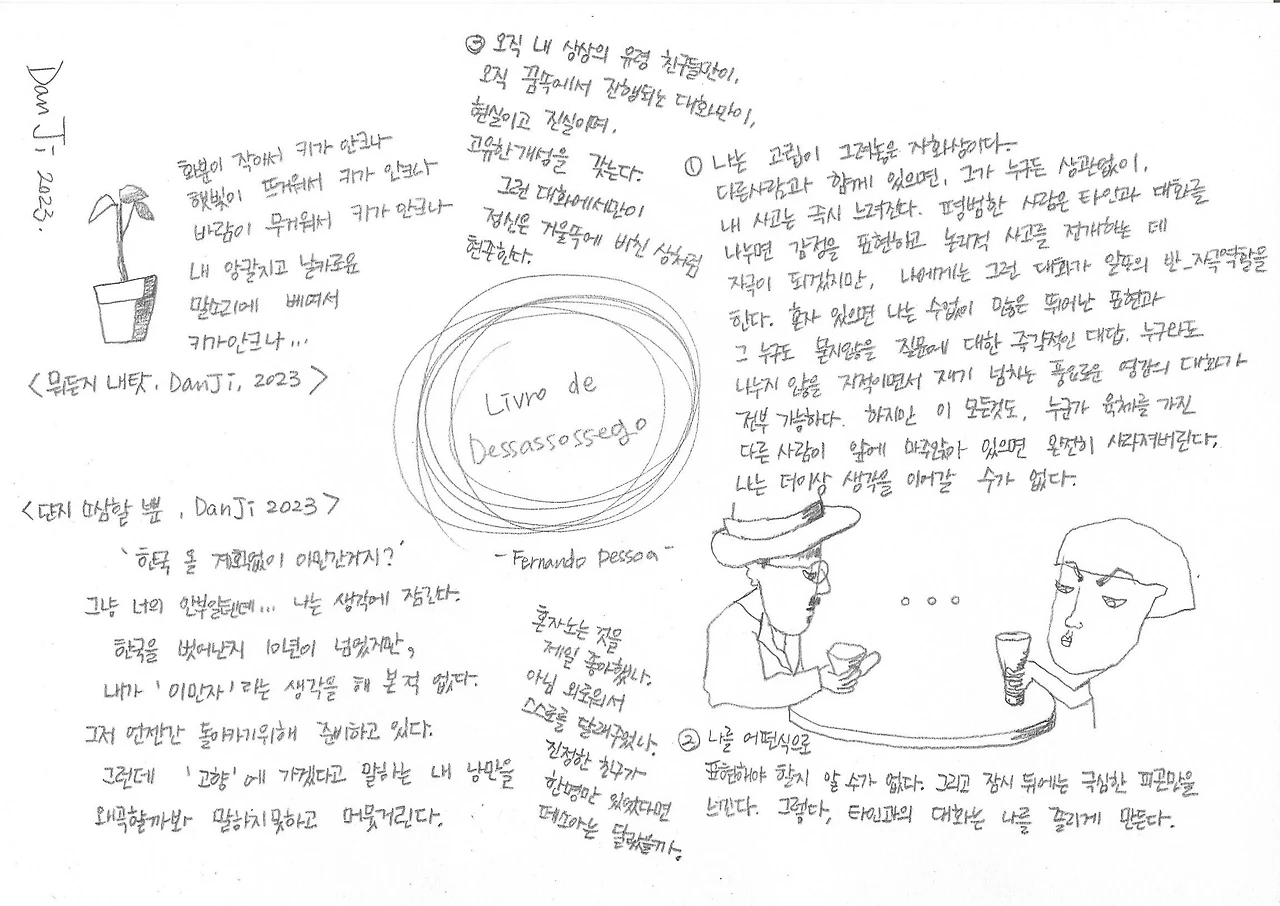 DanJi 2023.
화분이 작아서 키가 안크나
햇빛이 뜨거워서 키가 안크나
바람이 무거워서 키가 안크나
내 앙갈지고 날카로운
말소리에 베여서
키가안크나...
<뭐든지 내탓. DanJi, 2023>
③ 오직 내 상상의 유령 친구들만이,
오직 꿈뚝에서 진행되는 대화만이,
현실이고 진실이며,
고유한개성을 갖는다.
그런 대화에서만이
정신은 거울뚝에 비친 상처럼
현존한다.
Livro de
Dessassossego
-Fernando Pessoa-
① 나는 고립이 그려놓은 자화상이다.
다른사람과 함께 있으면, 그가 누구든 상관없이,
내 사고는 즉시 느려진다. 평범한 사람은 타인과 대화를
나누면 감정을 표현하고 논리적 사고를 전개하는 데
자극이 되겠지만, 나에게는 그런 대화가 일종의 반_자극역할을
한다. 혼자 있으면 나는 수없이 많은 뛰어난 표현과
그 누구도 묻지않을 질문에 대한 즉각적인 대답. 누구와도
나누지 않을 지적이면서 재기 넘치는 풍요로운 영감의 대화가
전부 가능하다. 하지만 이 모든것도, 누군가 육체를 가진
다른 사람이 앞에 마주앉아 있으면 완전히 사라져버린다.
나는 더이상 생각을 이어갈 수가 없다.
...
② 나를 어떤식으로
표현해야 할지 알 수가 없다. 그리고 잠시 뒤에는 극심한 피곤만을
느낀다. 그렇다, 타인과의 대화는 나를 졸리게 만든다.
<단지 소심할 뿐, DanJi 2023>
'한국 올 계획없이 이민간거지?'
그냥 너의 안부일텐데... 나는 생각에 잠긴다.
한국을 벗어난지 10년이 넘었지만,
내가 '이민자'라는 생각을 해 본적 없다.
그저 언젠간 돌아가기위해 준비하고 있다.
그런데 '고향'에 가겠다고 말하는 내 낭만을
왜곡할까봐 말하지못하고 머뭇거린다.
혼자노는 것을
제일 좋아했나.
아님 외로워서
스스로를 달래주었나.
진정한 친구가
한명만 있었다면
페소아는 달랐을까.